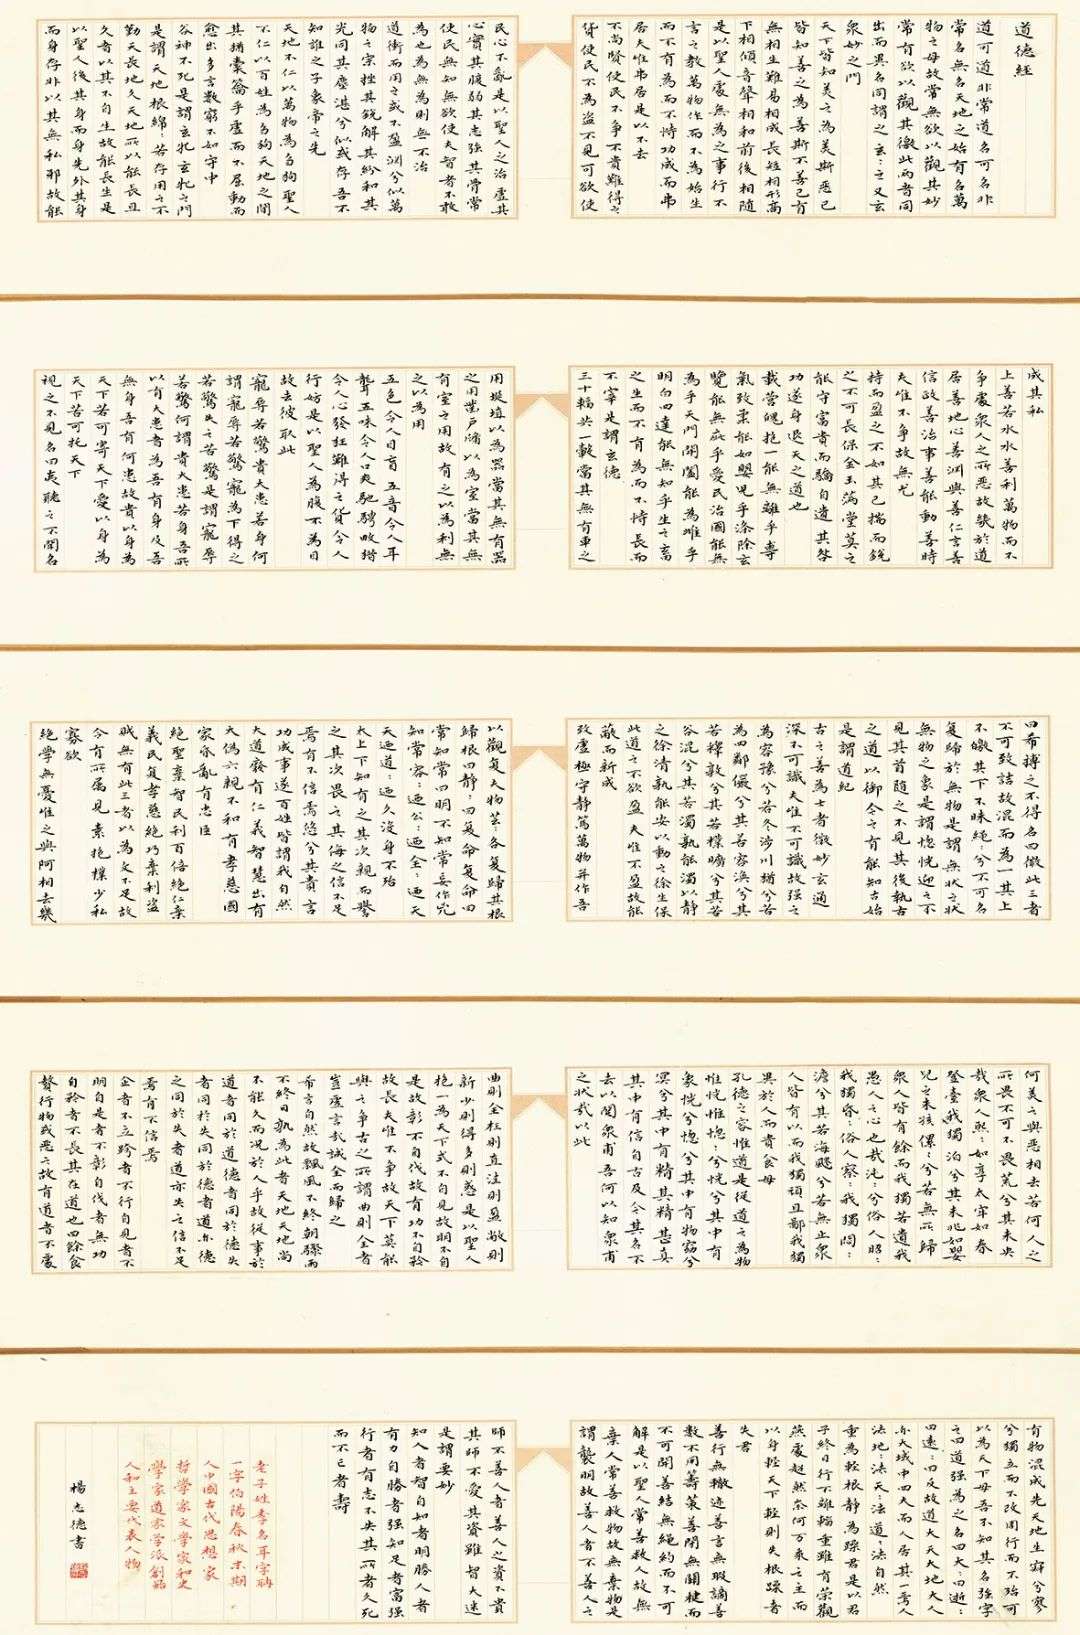 道德經
道可道非常道名可名非
常名無名天地之始有名萬
物之母故常無欲以觀其妙
常有欲以觀其徼此兩者同
出而異名同謂之玄:之又玄
衆妙之門
天下皆知美之為美斯惡已
皆知善之為善斯不善已有
無相生難易相成長短相形高
下相傾音聲相和前後相隨
是以聖人處無為之事行不
言之教萬物作而不為始生
而不有為而不恃功成而弗
居夫唯弗居是以不去
不尚賢使民不爭不貴難得之
貨使民不為盜不見可欲使
民心不亂是以聖人之治虛其
心實其腹弱其志強其骨常
使民無知無欲使夫智者不敢
為也為無為則無不治
道衝而用之或不盈淵兮似萬
物之宗挫其銳解其紛和其
光同其塵湛兮似或存吾不
知誰之子象帝之先
天地不仁以萬物為芻狗聖人
不仁以百姓為芻狗天地之間
其猶橐籥乎虛而不屈動而
愈出多言數窮不如守中
谷神不死是謂玄牝玄牝之門
是謂天地根綿:若存用之不
勤天長地久天地所以能長且
久者以其不自生故能長生是
以聖人後其身而身先外其身
而身存非以其無私邪故能
成其私
上善若水水善利萬物而不
爭處衆人之所惡故幾於道
居善地心善淵與善仁言善
信政善治事善能動善時
夫唯不爭故無尤
持而盈之不如其已揣而銳
之不可長保金玉滿堂莫之
能守富貴而驕自遺其咎
功遂身退天之道也
載營魄抱一能無離乎專
氣致柔能如嬰兒乎滌除玄
覽能無疵乎愛民治國能無
為乎天門開闔能為雌乎
明白四達能無知乎生之畜
之生而不有為而不恃長而
不宰是謂玄德
三十輻共一轂當其無有車之
用埏埴以為器當其無有器
之用鑿戶牖以為室當其無
有室之用故有之以為利無
之以為用
五色令人目盲五音令人耳
聾五味令人口爽馳騁畋獵
令人心發狂難得之貨令人
行妨是以聖人為腹不為目
故去彼取此
寵辱若驚貴大患若身何
謂寵辱若驚寵為下得之
若驚失之若驚是謂寵辱
若驚何謂貴大患若身吾所
以有大患者為吾有身及吾
無身吾有何患故貴以身為
天下若可寄天下愛以身為
天下若可托天下
視之不見名曰夷聽之不聞名
曰希搏之不得名曰微此三者
不可致詰故混而為一其上
不皦其下不昧繩:兮不可名
复歸於無物是謂無狀之狀
無物之象是謂惚恍迎之不
見其首隨之不見其後執古
之道以御今之有能知古始
是謂道紀
古之善為士者微妙玄通
深不可識夫唯不可識故强之
為容豫兮若冬涉川猶兮若
畏四鄰儼兮其若客渙兮其
若釋敦兮其若樸曠兮其若
谷混兮其若濁孰能濁以靜
之徐清孰能安以動之徐生保
此道之不欲盈夫唯不盈故能
蔽而新成
致虛極守靜篤萬物並作吾
以觀复夫物芸:各复歸其根
歸根曰靜:曰复命复命曰
常知常曰明不知常妄作凶
知常容:迺公:迺全:迺天
天迺道:迺久沒身不殆
太上下知有之其次親而譽
之其次畏之其侮之信不足
焉有不信焉悠兮其貴言
功成事遂百姓皆謂我自然
大道廢有仁義智慧出有
大偽六親不和有孝慈國
家昏亂有忠臣
絕聖棄智民利百倍絕仁棄
義民复孝慈絕巧棄利盜
賊無有此三者以為文不足故
令有所屬見素抱樸少私
寡欲
絕學無憂唯之與阿相去幾
何美之與惡相去若何人之
所畏不可不畏荒兮其未央
哉衆人熙:如享太牢如春
登臺我獨泊兮其未兆如嬰
兒之未孩儽:兮若無所歸
衆人皆有餘而我獨若遺我
愚人之心也哉沌:兮俗人昭:
我獨昏:俗人察:我獨悶:
澹兮其若海飂兮若無止衆
人皆有以而我獨頑且鄙我獨
異於人而貴食母
孔德之容惟道是從道之為物
惟恍惟惚:兮恍兮其中有
象恍兮惚兮其中有物窈兮
冥兮其中有精其精甚真
其中有信自古及今其名不
去以閱衆甫吾何以知衆甫
之狀哉以此
曲則全枉則直洼則盈敝則
新少則得多則惑是以聖人
抱一為天下式不自見故明不自
是故彰不自伐故有功不自矜
故長夫唯不爭故天下莫能
與之爭古之所謂曲則全者
豈虛言哉誠全而歸之
希言自然故飄風不終朝驟雨
不終日孰為此者天地天地尚
不能久而況於人乎故從事於
道者同於道德者同於德失
者同於失同於德者道亦德
之同於失者道亦失之信不足
焉有不信焉
企者不立跨者不行自見者不
明自是者不彰自伐者無功
自矜者不長其在道也曰餘食
贅行物或惡之故有道者不處
有物混成先天地生寂兮寥
兮獨立而不改周行而不殆可
以為天下母吾不知其名強字
之曰道强為之名曰大:曰逝:
曰遠:曰反故道大天大地大人
亦大域中四大而人居其一焉人
法地:法天:法道:法自然
重為輕根靜為躁君是以君
子終日行不離輜重雖有榮觀
燕處超然奈何萬乘之主而
以身輕天下輕則失根躁者
失君
善行無轍迹善言無瑕謫善
數不用籌策善閉無關楗而
不可開善結無繩約而不可
解是以聖人常善救人故無
棄人常善救物故無棄物是
謂襲明故善人者不善人之
師不善人者善人之資不貴
其師不愛其資雖智大迷
是謂要妙
知人者智自知者明勝人者
有力自勝者强知足者富强
行者有志不失其所者久死
而不亡者壽
老子姓李名耳字聃
一字伯陽春秋末期
人中國古代思想家
哲學家文學家和史
學家道家學派創始
人和主要代表人物
楊志德書